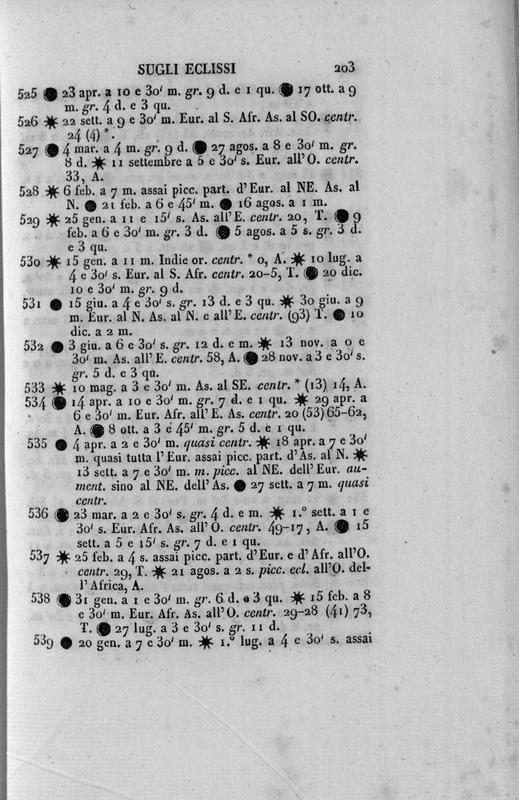 SUGLI ECLISSI 203
525 ● 23 apr. a 10 e 30' m. gr. 9 d. e 1 qu. ● 17 ott. a 9
m. gr. 4 d. e 3 qu.
526 ✷ 22 sett. a 9 e 30' m. Eur. al S. Afr. As. al SO. centr.
24 (4) *.
527 ● 4 mar. a 4 m. gr. 9 d. ● 27 agos. a 8 e 30' m. gr.
8 d. ✷ 11 settembre a 5 e 30' s. Eur. all'O. centr.
33, A.
528 ✷ 6 feb. a 7 m. assai picc. part. d'Eur. al NE. As. al
N. ● 21 feb. a 6 e 45' m. ● 16 agos. a 1 m.
529 ✷ 25 gen. a 11 e 15' s. As. all'E. centr. 20, T. ● 9
feb. a 6 e 30' m. gr. 3 d. ● 5 agos. a 5 s. gr. 3 d.
e 3 qu.
530 ✷ 15 gen. a 11 m. Indie or. centr. * 0, A. ✷ 10 lug. a
4 e 30' s. Eur. al S. Afr. centr. 20-5, T. ● 20 dic.
10 e 30' m. gr. 9 d.
531 ● 15 giu. a 4 e 30' s. gr. 13 d. e 3 qu. ✷ 30 giu. a 9
m. Eur. al N. As. al N. e all'E. centr. (93) T. ● 10
dic. a 2 m.
532 ● 3 giu. a 6 e 30' s. gr. 12 d. e m. ✷ 13 nov. a 0 e
30' m. As. all'E. centr. 58, A. ● 28 nov. a 3 e 30' s.
gr. 5 d. e 3 qu.
533 ✷ 10 mag. a 3 e 30' m. As. al SE. centr. * (13) 14, A.
534 ● 14 apr. a 10 e 30' m. gr. 7 d. e 1 qu. ✷ 29 apr. a
6 e 30' m. Eur. Afr. all'E. As. centr. 20 (53) 65-62,
A. ● 8 ott. a 3 e 45' m. gr. 5 d. e 1 qu.
535 ● 4 apr. a 2 e 30' m. quasi centr. ✷ 18 apr. a 7 e 30'
m. quasi tutta l'Eur. assai picc. part. d'As. al N. ✷
13 sett. a 7 e 30' m. m. picc. al NE. dell'Eur. au-
ment. sino al NE. dell'As. ● 27 sett. a 7 m. quasi
centr.
536 ● 23 mar. a 2 e 30' s. gr. 4 d. e m. ✷ 1.° sett. a 1 e
30' s. Eur. Afr. As. all'O. centr. 49-17, A. ● 15
sett. a 5 e 15' s. gr. 7 d. e 1 qu.
537 ✷ 25 feb. a 4 s. assai picc. part. d'Eur. e d'Afr. all'O.
centr. 29, T. ✷ 21 agos. a 2 s. picc. ecl. all'O. del-
l'Africa, A.
538 ● 31 gen. a 1 e 30' m. gr. 6 d. e 3 qu. ✷ 15 feb. a 8
e 30' m. Eur. Afr. As. all'O. centr. 29-28 (41) 73,
T. ● 27 lug. a 3 e 30' s. gr. 11 d.
539 ● 20 gen. a 7 e 30' m. ✷ 1.° lug. a 4 e 30' s. assai